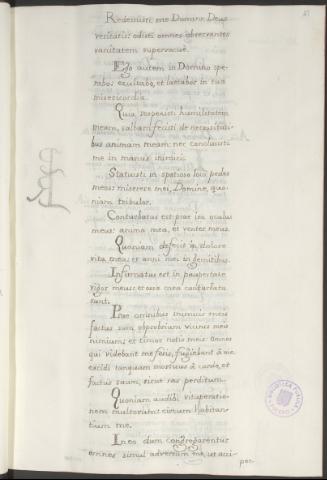 Redemisti me Domine Deus
veritatis: odisti omnes observantes
vanitatem supervacuè.
Ego autem in Domino spe-
rabo: exultabo, et laetabor in tua
misericordia.
Quia respexisti humilitatem
meam, salbam fecisti de necessitati-
bus animam meam: nec conclusisti
me in manus inimici.
Statuisti in spatioso loco pedes
meos: miserere mei, Domine, quo-
niam tribulor.
Conturbatus est prae ira oculus
meus: anima mea, et venter meus.
Quoniam defecit in dolore
vita mea: et anni mei in gemitibus.
Infirmatus est in paupertate
vigor meus: et ossa mea conturbata
sunt.
Prae omnibus inimicis meis
factus sum opbrobrium vicinis meis
nimium: et timor notis meis: Omnes
qui videbant me foris, fugiebant à me:
excidi tanquam mortuus à corde, et
factus sum, sicut vas perditum.
Quoniam audibi vituperatio-
nem multorum: circum habitan-
tium me.
In eo dum congregarentur
omnes simul adversum me, ut acci-
per